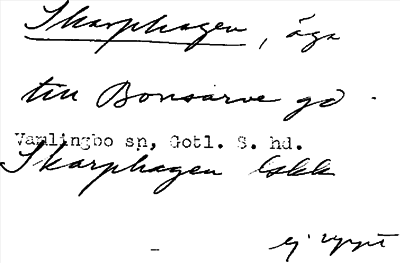 Skarphagen, äga
till Bonsarve gd.
Vamlingbo sn, Gotl. S. hd.
Skarphagen Eskk
ej uppt